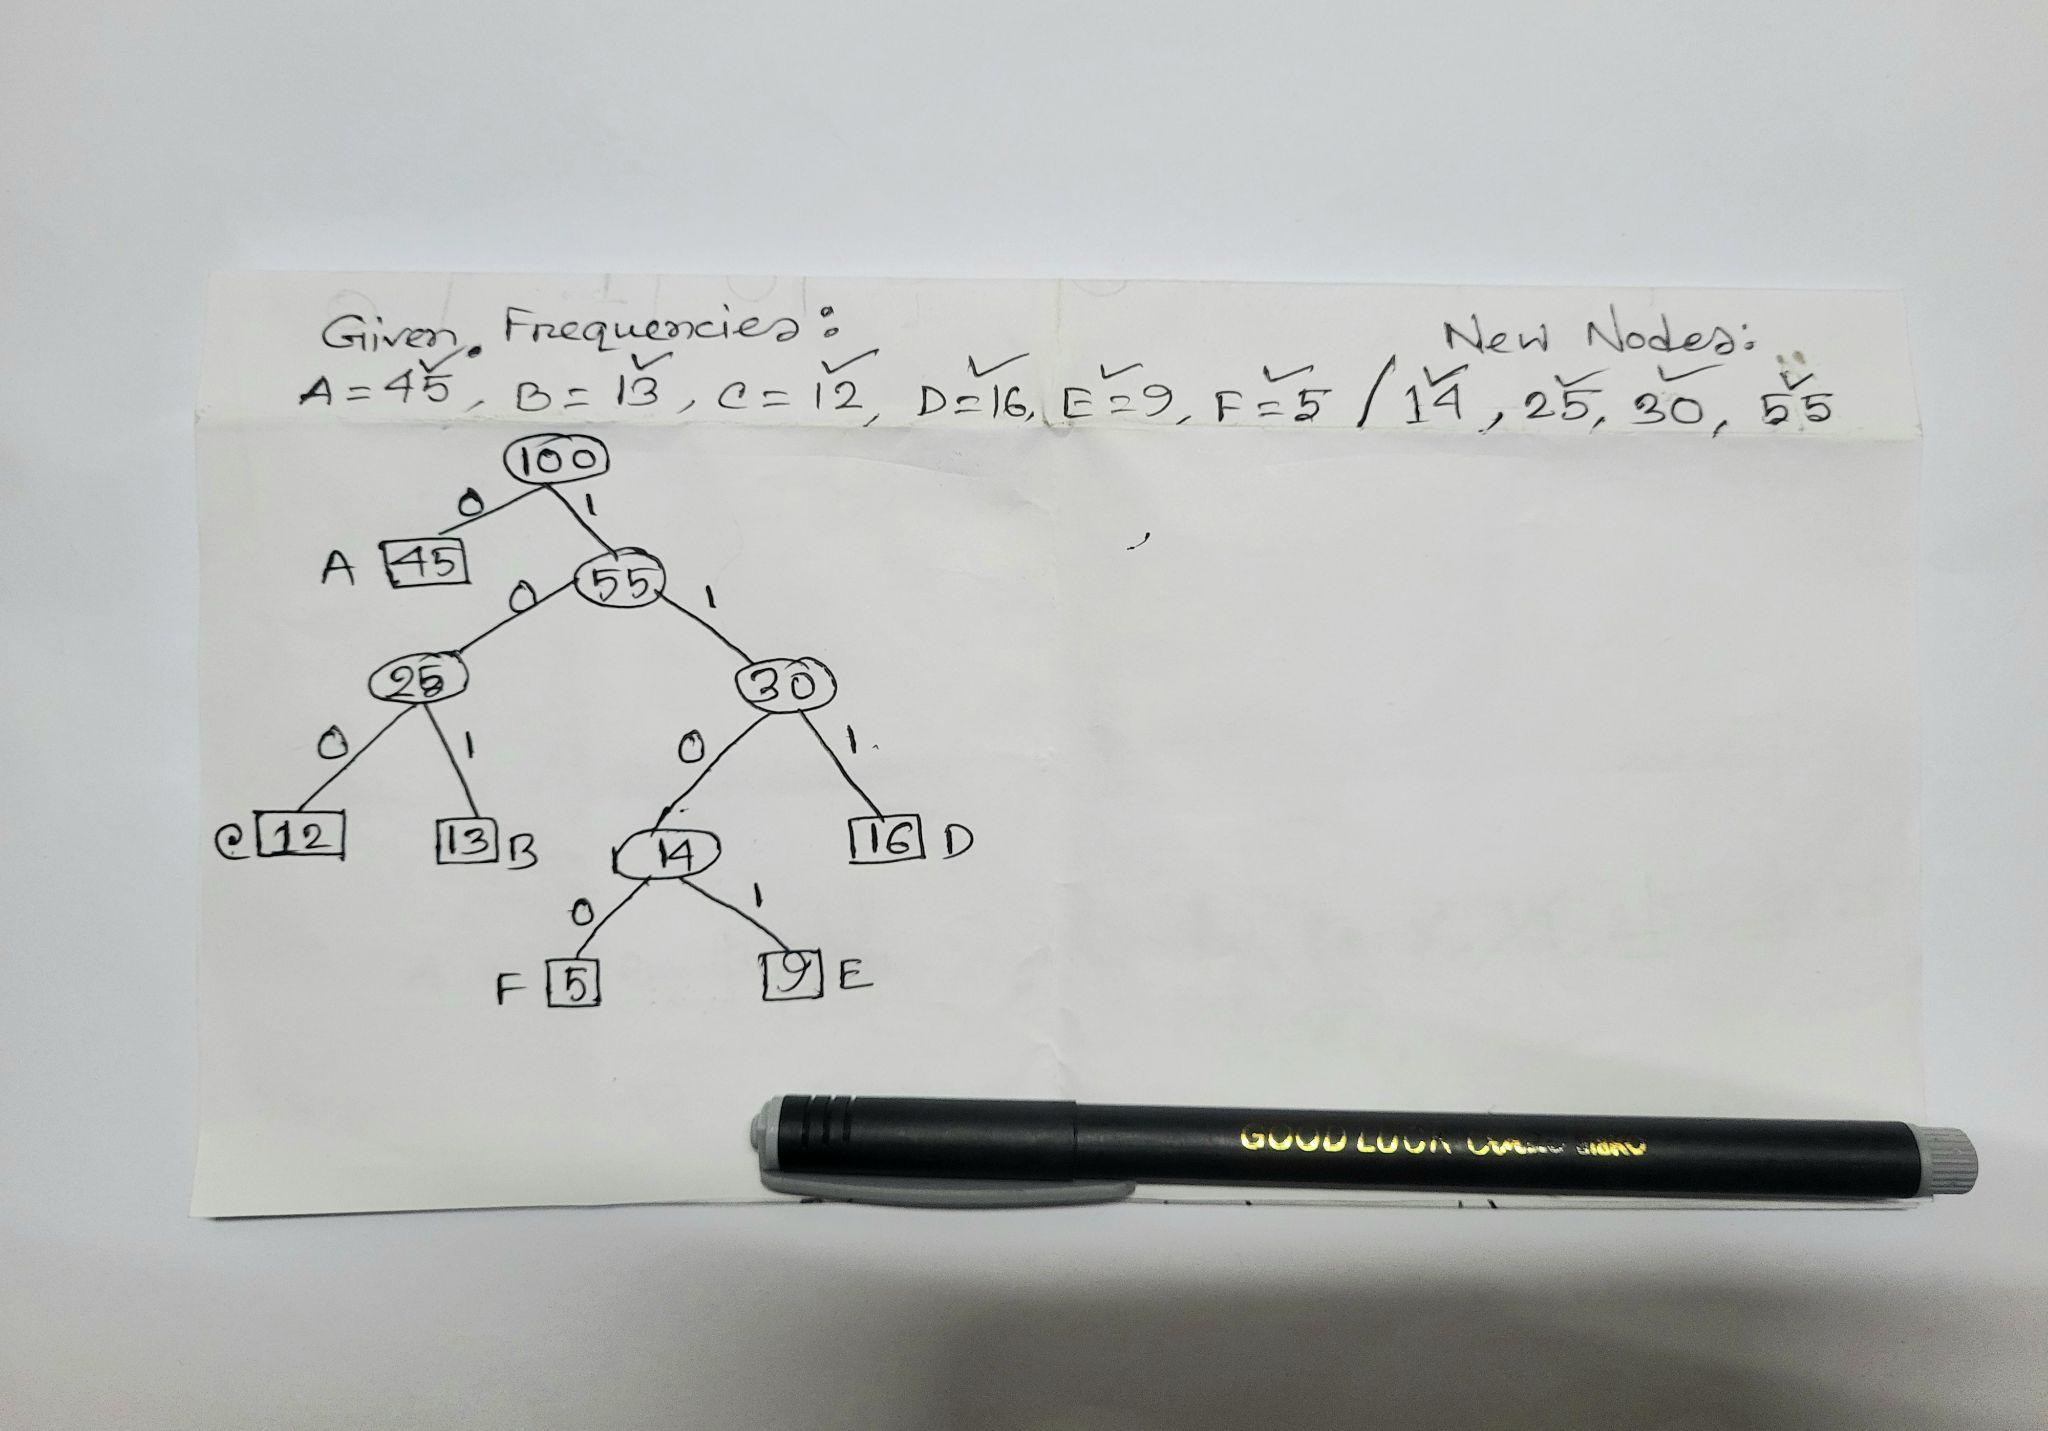 Given Frequencies:
New Nodes:
A = 45, B = 13, C = 12, D = 16, E = 9, F = 5 / 14, 25, 30, 55
100
0 1
A 45
55
0 1
25
30
0 1 0 1
C 12
13 B
14
16 D
0 1
F 5
9 E
GOOD LUCK